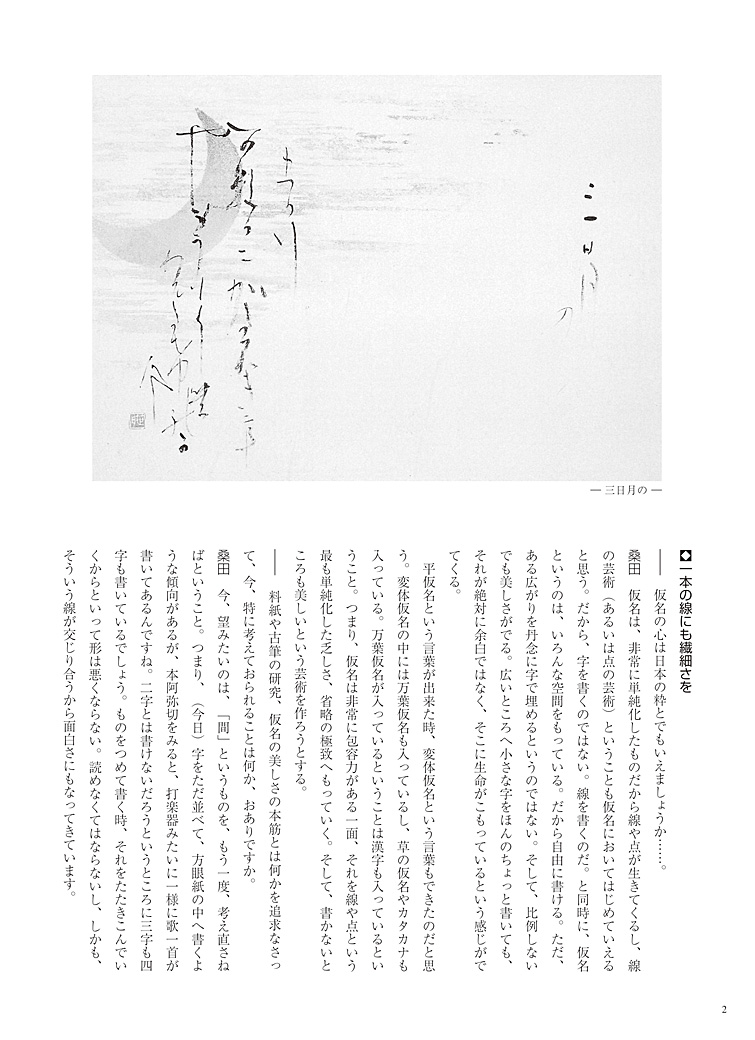 三日月の
― 三日月の ―
◆一本の線にも繊細さを
―― 仮名の心は日本の粋とでもいえましょうか……。
桑田　仮名は、非常に単純化したものだから線や点が生きてくるし、線
の芸術（あるいは点の芸術）ということも仮名においてはじめていえる
と思う。だから、字を書くのではない。線を書くのだ。と同時に、仮名
というのは、いろんな空間をもっている。だから自由に書ける。ただ、
ある広がりを丹念に字で埋めるというのではない。そして、比例しない
でも美しさがでる。広いところへ小さな字をほんのちょっと書いても、
それが絶対に余白ではなく、そこに生命がこもっているという感じがで
てくる。
　平仮名という言葉が出来た時、変体仮名という言葉もできたのだと思
う。変体仮名の中には万葉仮名も入っているし、草の仮名やカタカナも
入っている。万葉仮名が入っているということは漢字も入っているとい
うこと。つまり、仮名は非常に包容力がある一面、それを線や点という
最も単純化した乏しさ、省略の極致へもっていく。そして、書かないと
ころも美しいという芸術を作ろうとする。
―― 料紙や古筆の研究、仮名の美しさの本筋とは何かを追求なさっ
て、今、特に考えておられることは何か、おありですか。
桑田　今、望みたいのは、「間」というものを、もう一度、考え直さね
ばということ。つまり、（今日）字をただ並べて、方眼紙の中へ書くよ
うな傾向があるが、本阿弥切をみると、打楽器みたいに一様に歌一首が
書いてあるんですね。二字とは書けないだろうというところに三字も四
字も書いているでしょう。ものをつめて書く時、それをたたきこんでい
くからといって形は悪くならない。読めなくてはならないし、しかも、
そういう線が交じり合うから面白さにもなってきています。
2